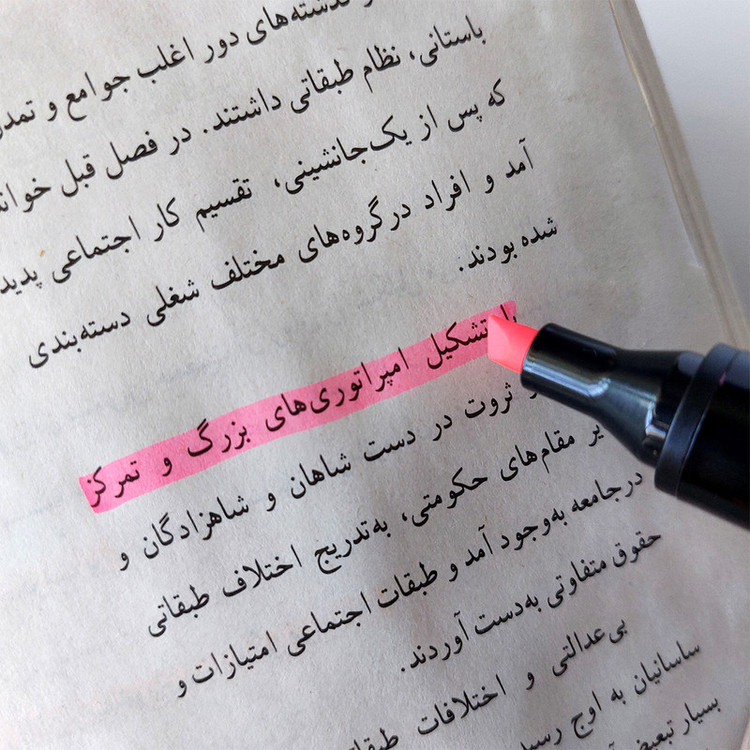 گذشته‌های دور اغلب جوامع و
باستانی، نظام طبقاتی داشتند. در فصل قبل
که پس از یک‌جانشینی، تقسیم کار اجتماعی پدید
آمد و افراد در گروه‌های مختلف شغلی دسته‌بندی
شده بودند.
با تشکیل امپراتوری‌های بزرگ و تمرکز
ثروت در دست شاهان و شاهزادگان و
مقام‌های حکومتی، به‌تدریج اختلاف طبقاتی
در جامعه به‌وجود آمد و طبقات اجتماعی امتیازات و
حقوق متفاوتی به‌دست آوردند.
بی‌عدالتی و اختلافات
ساسانیان به اوج
بسیار